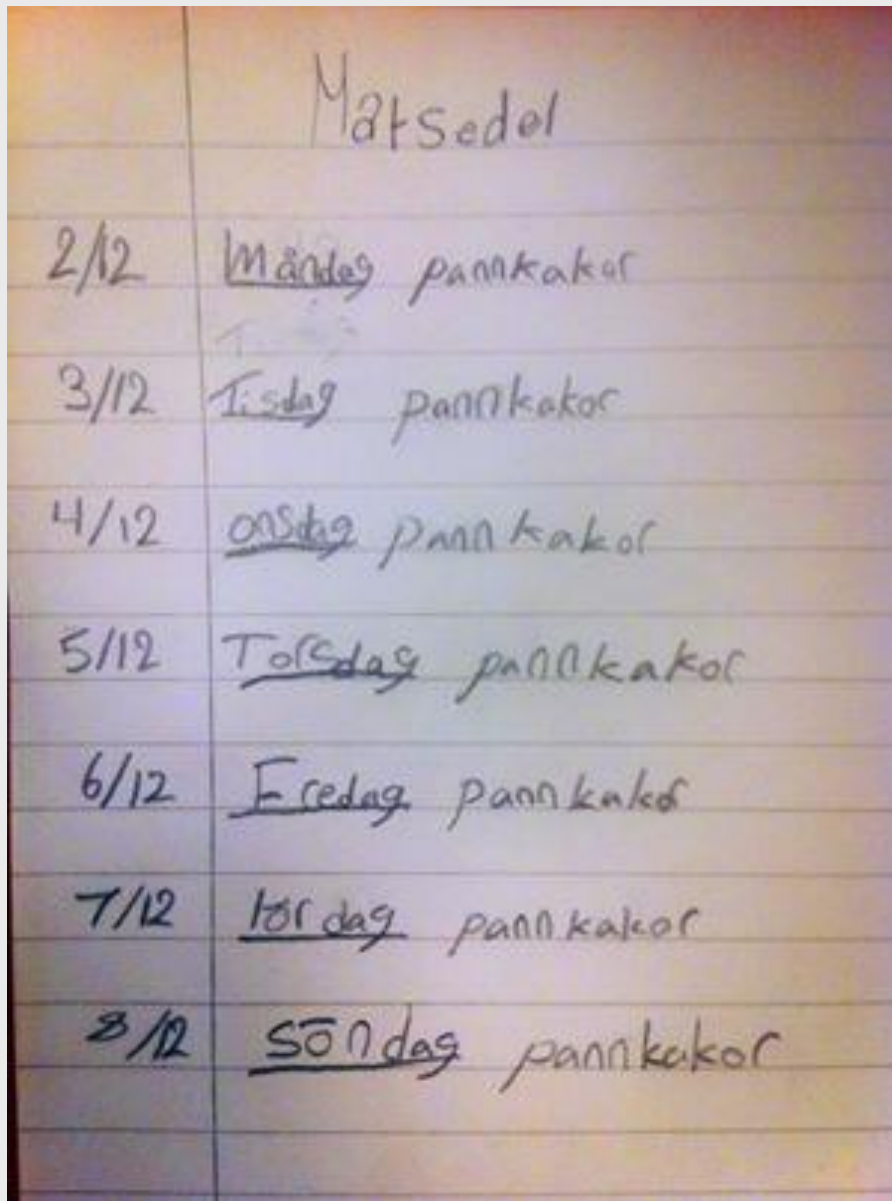 Matsedel
2/12 Måndag pannkakor
3/12 Tisdag pannkakor
4/12 onsdag pannkakor
5/12 Torsdag pannkakor
6/12 Fredag pannkakor
7/12 lördag pannkakor
8/12 söndag pannkakor